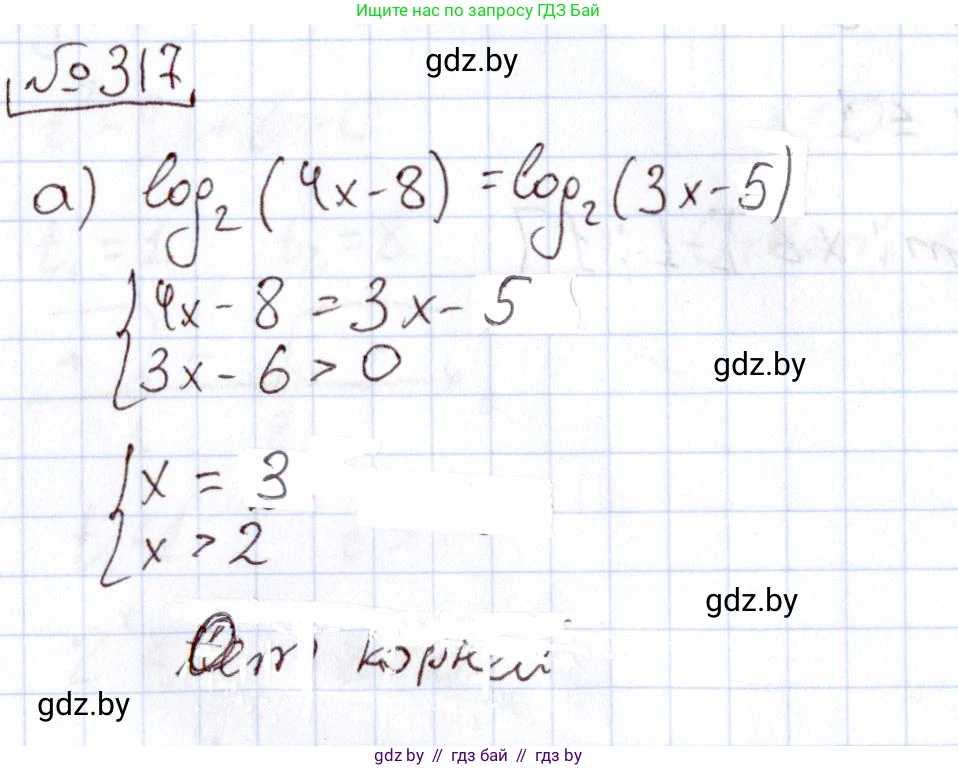 Ищите нас по запросу ГДЗ Бай
№317
gdz.by
а) log₂(4x-8) = log₂(3x-5)
4x - 8 = 3x - 5
3x - 6 > 0
gdz.by
x = 3
x > 2
gdz.by
gdz.by
gdz.by // гдз бай // gdz by